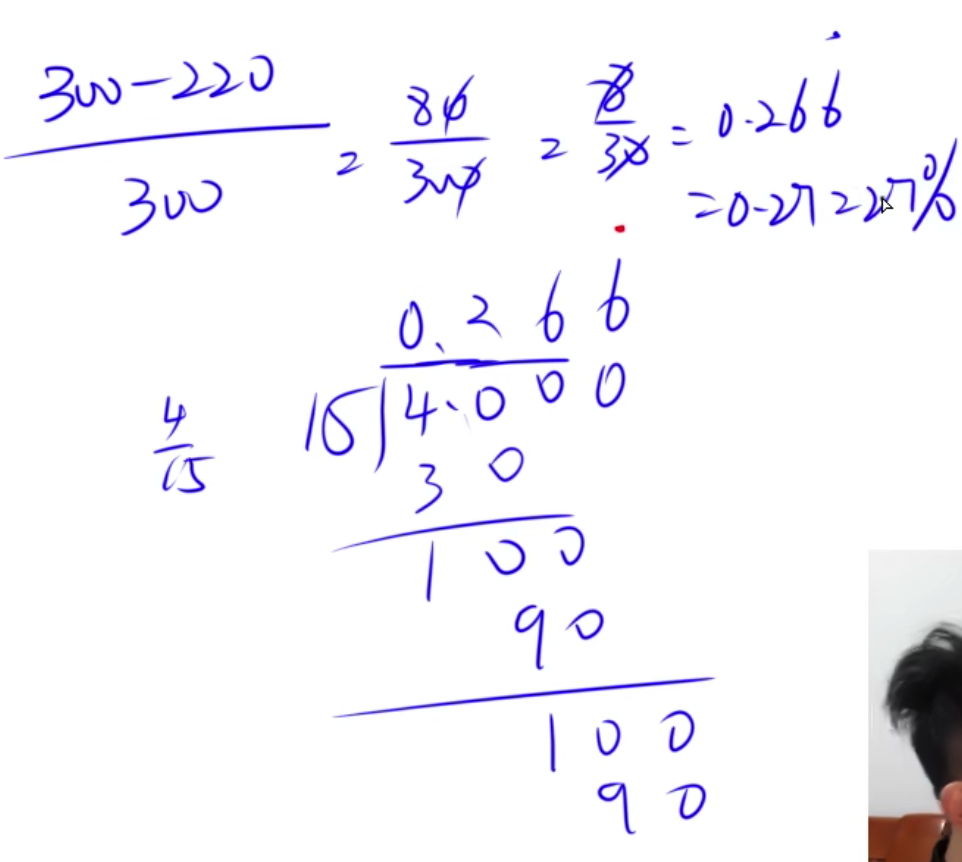 300-220
300
= 80/300 = 8/30 = 0.266̇
= 0.27 = 27%
0.266̇
15)4.000
4/15
30
100
90
100
90